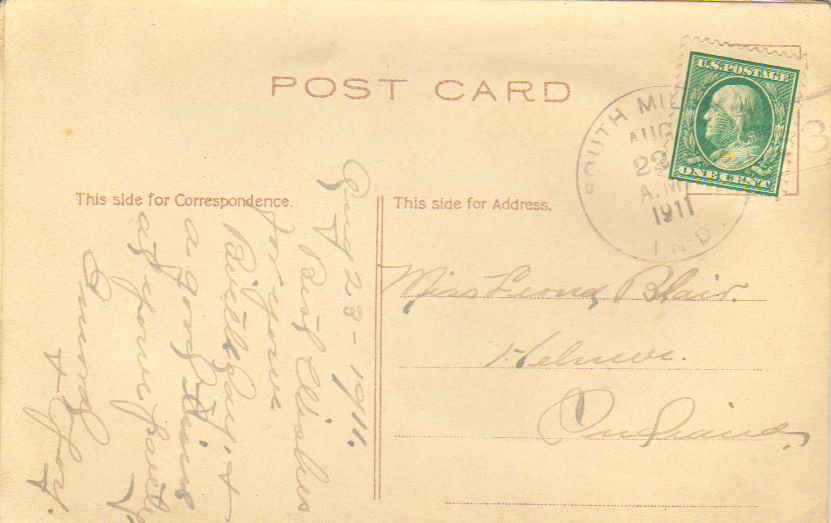 POST CARD
U.S. POSTAGE
ONE CENT
SOUTH MIL
AUG
22
A.M
1911
IND.
This side for Correspondence.
This side for Address.
Aug 23-1911.
Best Wishes
for your
a good time
at your party
Miss Leona Blair.
Helmer.
Indiana